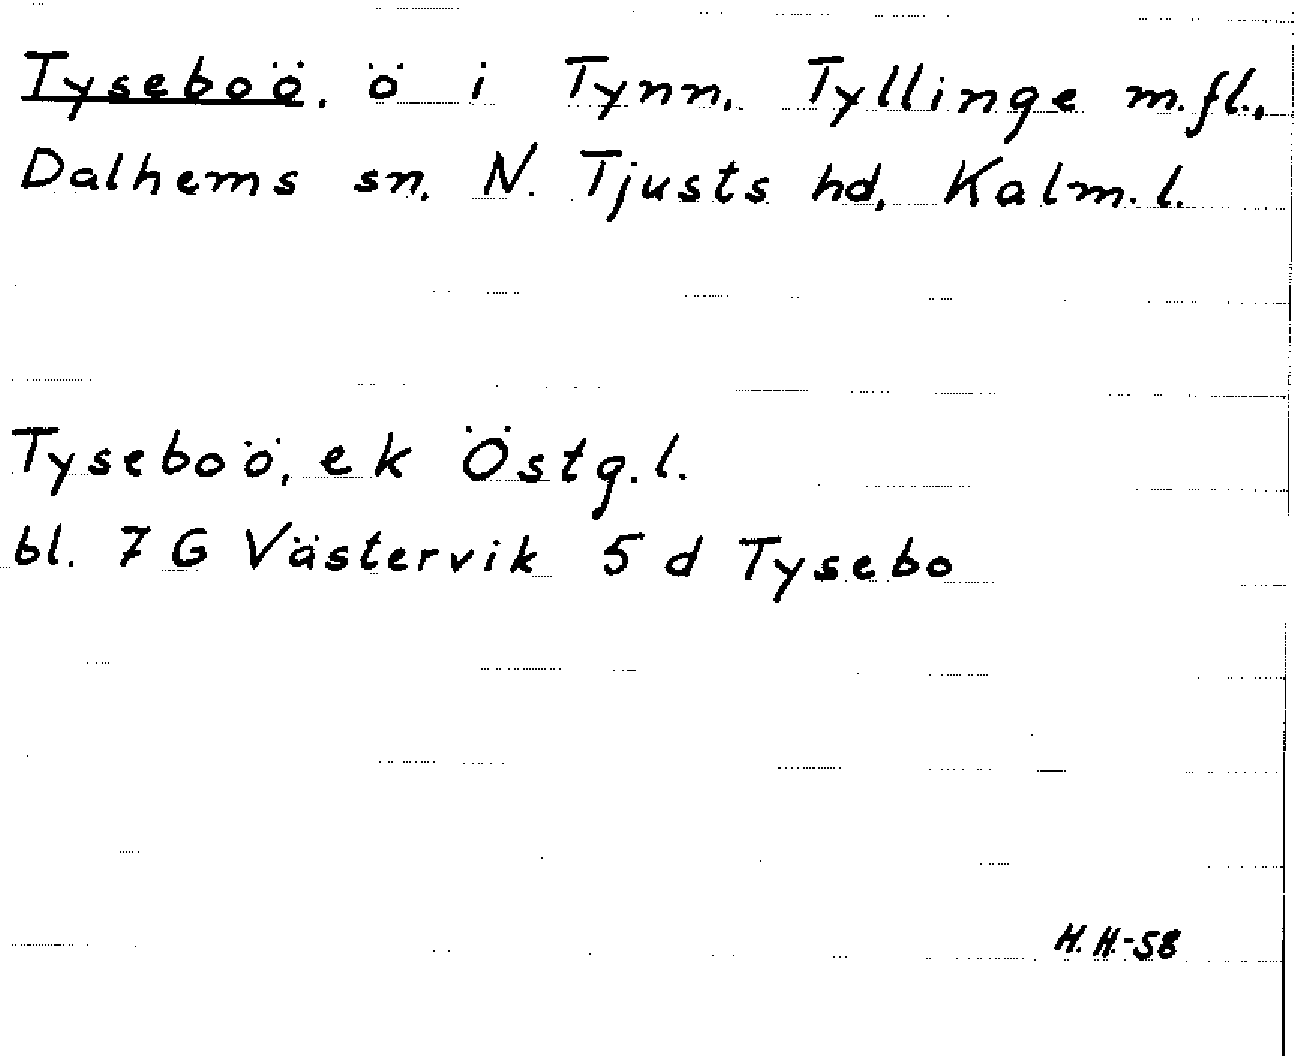 Tyseboö, ö i Tynn, Tyllinge m.fl.,
Dalhems sn, N. Tjusts hd, Kalm.l.
Tyseboö, ek Östg.l.
bl. 7 G Västervik 5 d Tysebo
H.H.-58